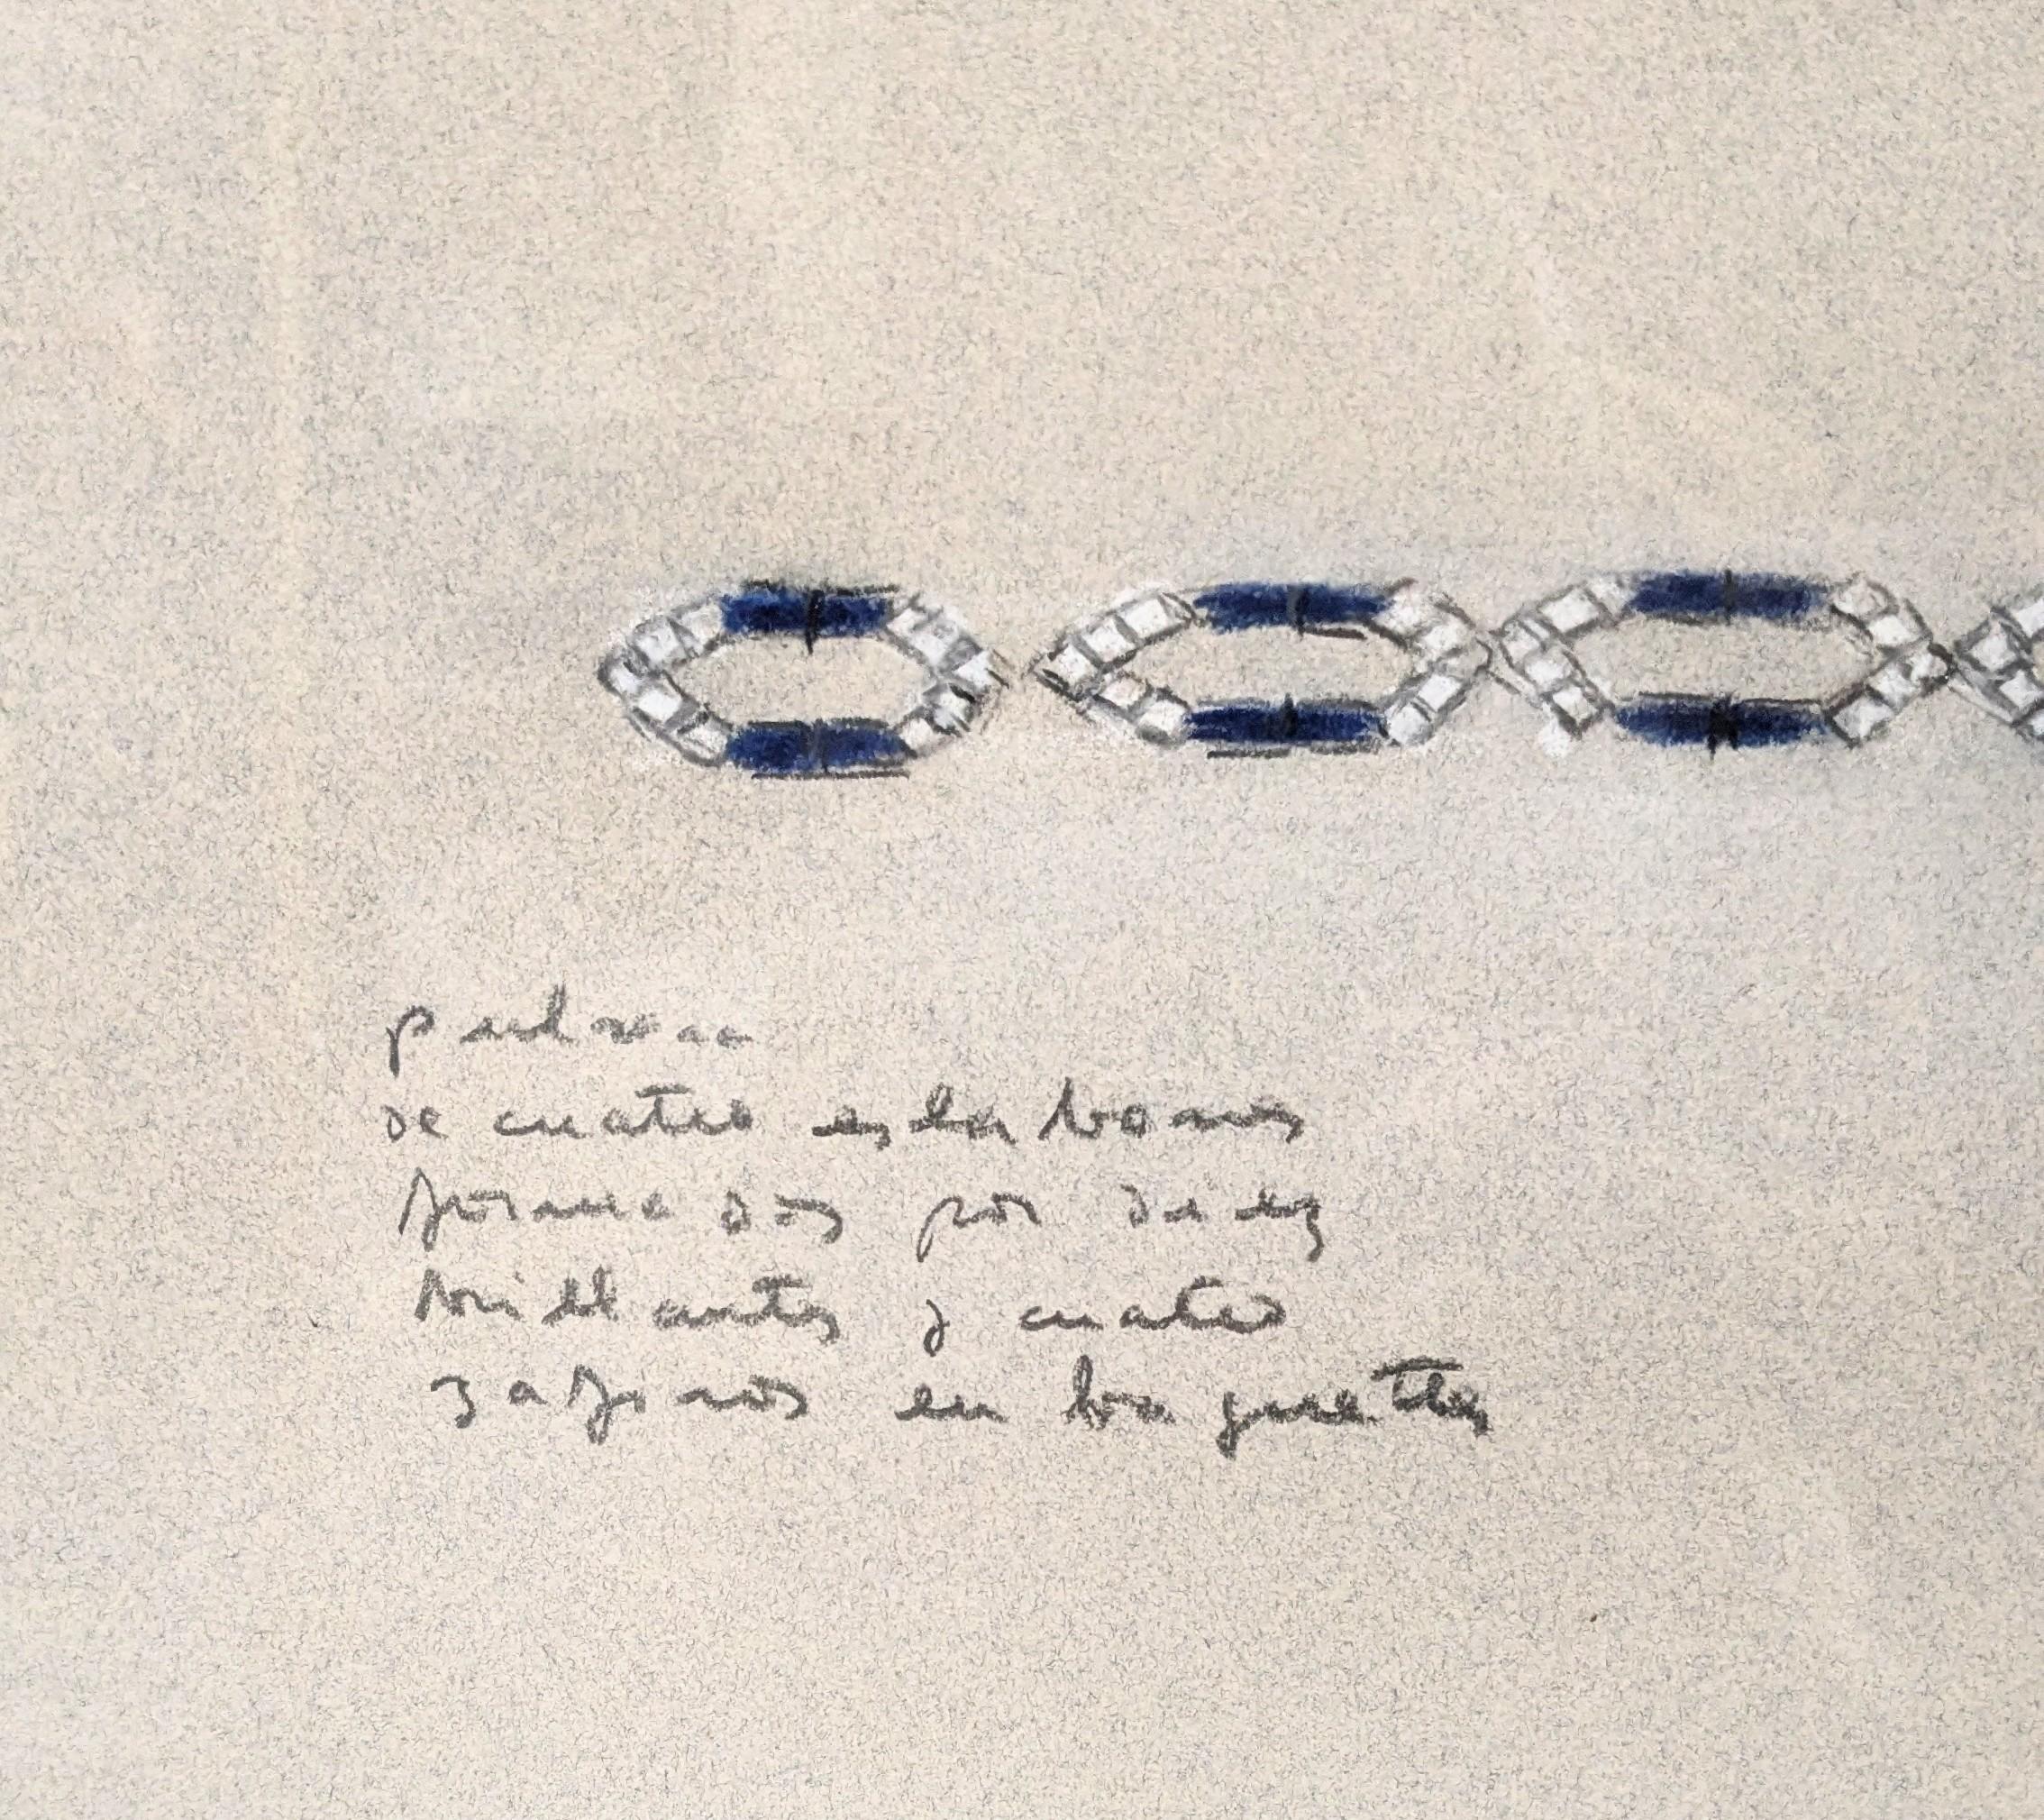 pulsera
de cuatro eslabones
formados por diez
brillantes y cuatro
zafiros en baguettes